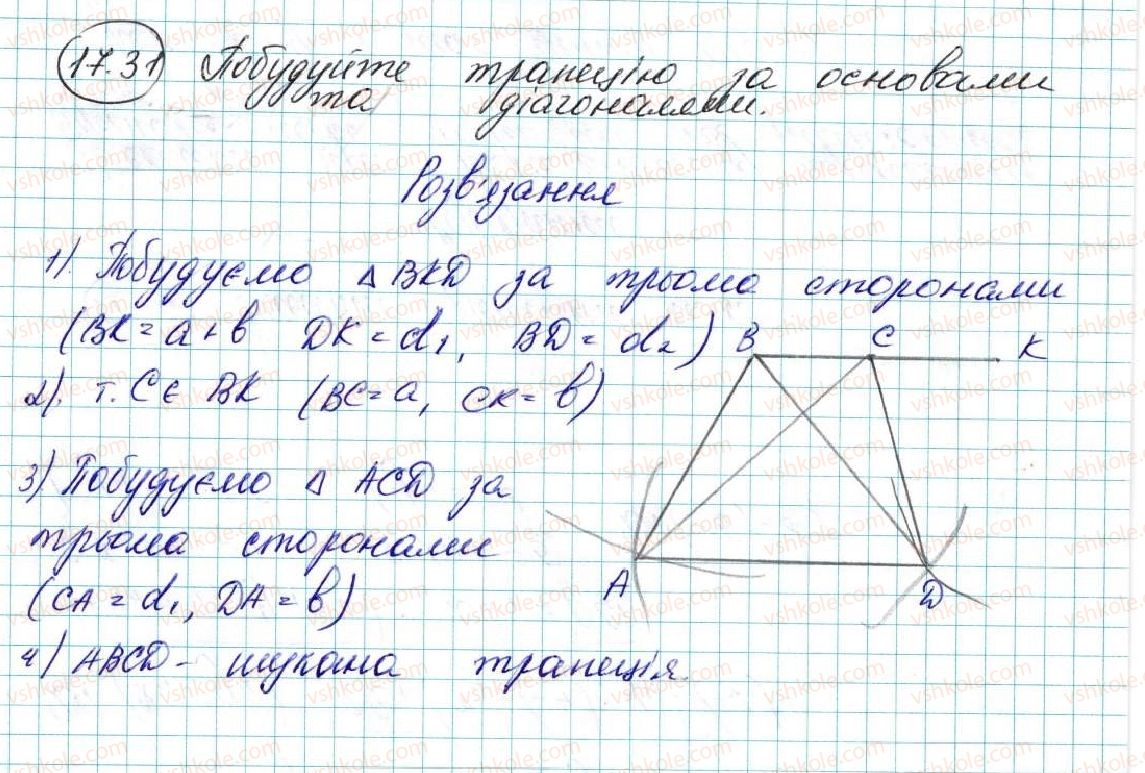 17.31 Побудуйте трапецію за основами
та діагоналями.
Розв'язання
1). Побудуємо △ BKD за трьома сторонами
(BK = a + в DK = d₁, BD = d₂)
2). т. C ∈ BK (BC = a, CK = в)
3) Побудуємо △ ACD за
трьома сторонами
(CA = d₁, DA = в)
4) ABCD - шукана трапеція.
B C K
A D
vshkole.com